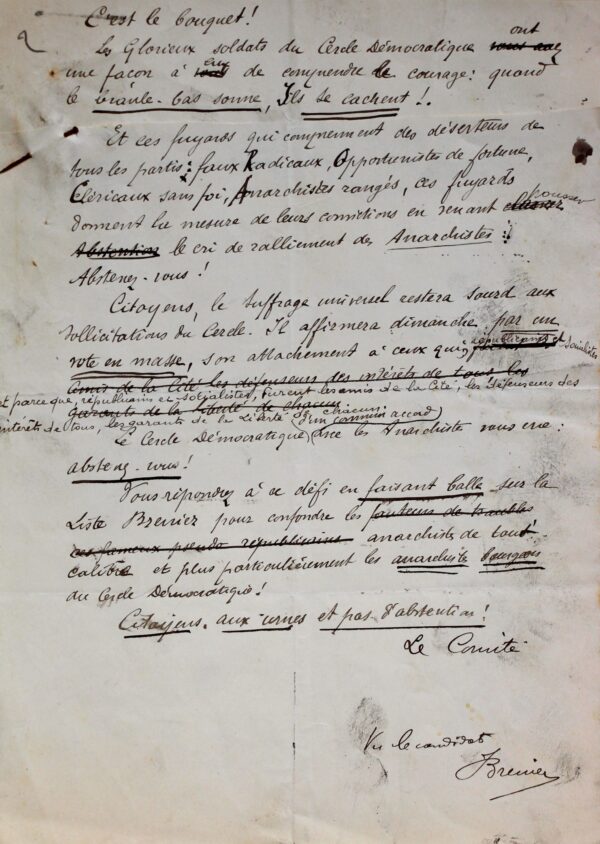 2
C'est le bouquet!
Les Glorieux soldats du Cercle Démocratique ont
une façon à eux de comprendre le courage: quand
le branle-bas sonne, Ils se cachent!.
Et ces fuyards qui comprennent des déserteurs de
tous les partis: faux Radicaux, Opportunistes de fortune,
Cléricaux sans foi, Anarchistes rangés, ces fuyards
donnent la mesure de leurs convictions en venant pousser
Abstention le cri de ralliement des Anarchistes:
Abstenez-vous!
Citoyens, le suffrage universel restera sourd aux
sollicitations du Cercle. Il affirmera dimanche, par un
vote en masse, son attachement à ceux qui, républicains et socialistes
amis de la Cité les défenseurs des intérêts de tous les
et parce que, républicains et socialistes, furent les amis de la Cité, les défenseurs des
garants de la liberté de chacun
intérêts de tous, les garants de la liberté de chacun
Le Cercle Démocratique, d'un commun accord avec les Anarchiste vous crie:
abstenez-vous!
Vous répondrez à ce défi en faisant balle sur la
Liste Brenier pour confondre les fauteurs de troubles
ces fameux pseudo républicains anarchiste de tout
calibre et plus particulièrement les anarchiste bourgeois
du Cercle Démocratique!
Citoyens, aux urnes et pas d'abstention!
Le Comité
Vu le candidat
Brenier